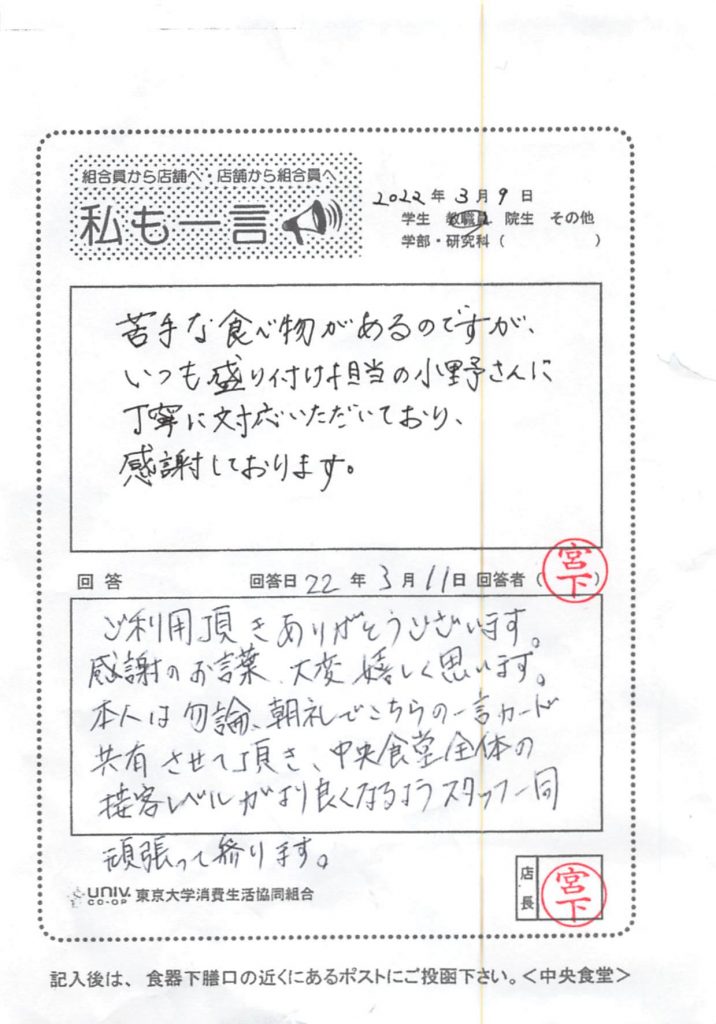 組合員から店舗へ・店舗から組合員へ
私も一言
2022年 3月 9日
学生 教職員 院生 その他
学部・研究科( )
苦手な食べ物があるのですが、
いつも盛り付け担当の小野さんに
丁寧に対応いただいており、
感謝しております。
回答 回答日 22年 3月 11日 回答者(宮下)
ご利用頂きありがとうございます。
感謝のお言葉、大変嬉しく思います。
本人は勿論、朝礼でこちらの一言カード
共有させて頂き、中央食堂全体の
接客レベルがより良くなるようスタッフ一同
頑張って参ります。
UNIV. CO-OP 東京大学消費生活協同組合
店長 宮下
記入後は、食器下膳口の近くにあるポストにご投函下さい。<中央食堂>